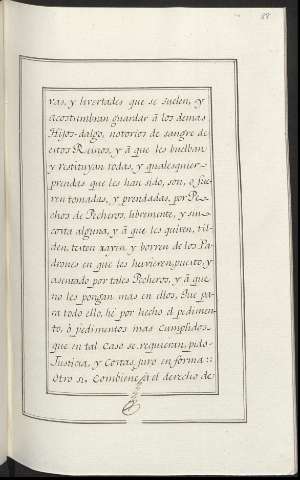 88
ras, y livertades que se suelen, y
acostumbran guardar â los demas
Hijos-dalgo, notorios de sangre de
estos Reinos, y â que les buelban
y restituyan todas, y qualesquier
prendas que les han sido, son, o fue
ren tomadas, y prendadas, por Pe
chos de Pecheros, libremente, y sin
costa alguna, y â que les quiten, til
den, testen rayen, y borren de los Pa
drones en que les huvieren, puesto, y
asentado por tales Pecheros, y â que
no les pongan mas en ellos, Que pa
ra todo ello, hê por hecho el pedimen
to, ô pedimentos mas Cumplidos,
que en tal Caso se requieran, pido
Justicia, y Costas, juro en forma::
Otro si, Combiene âl derecho de